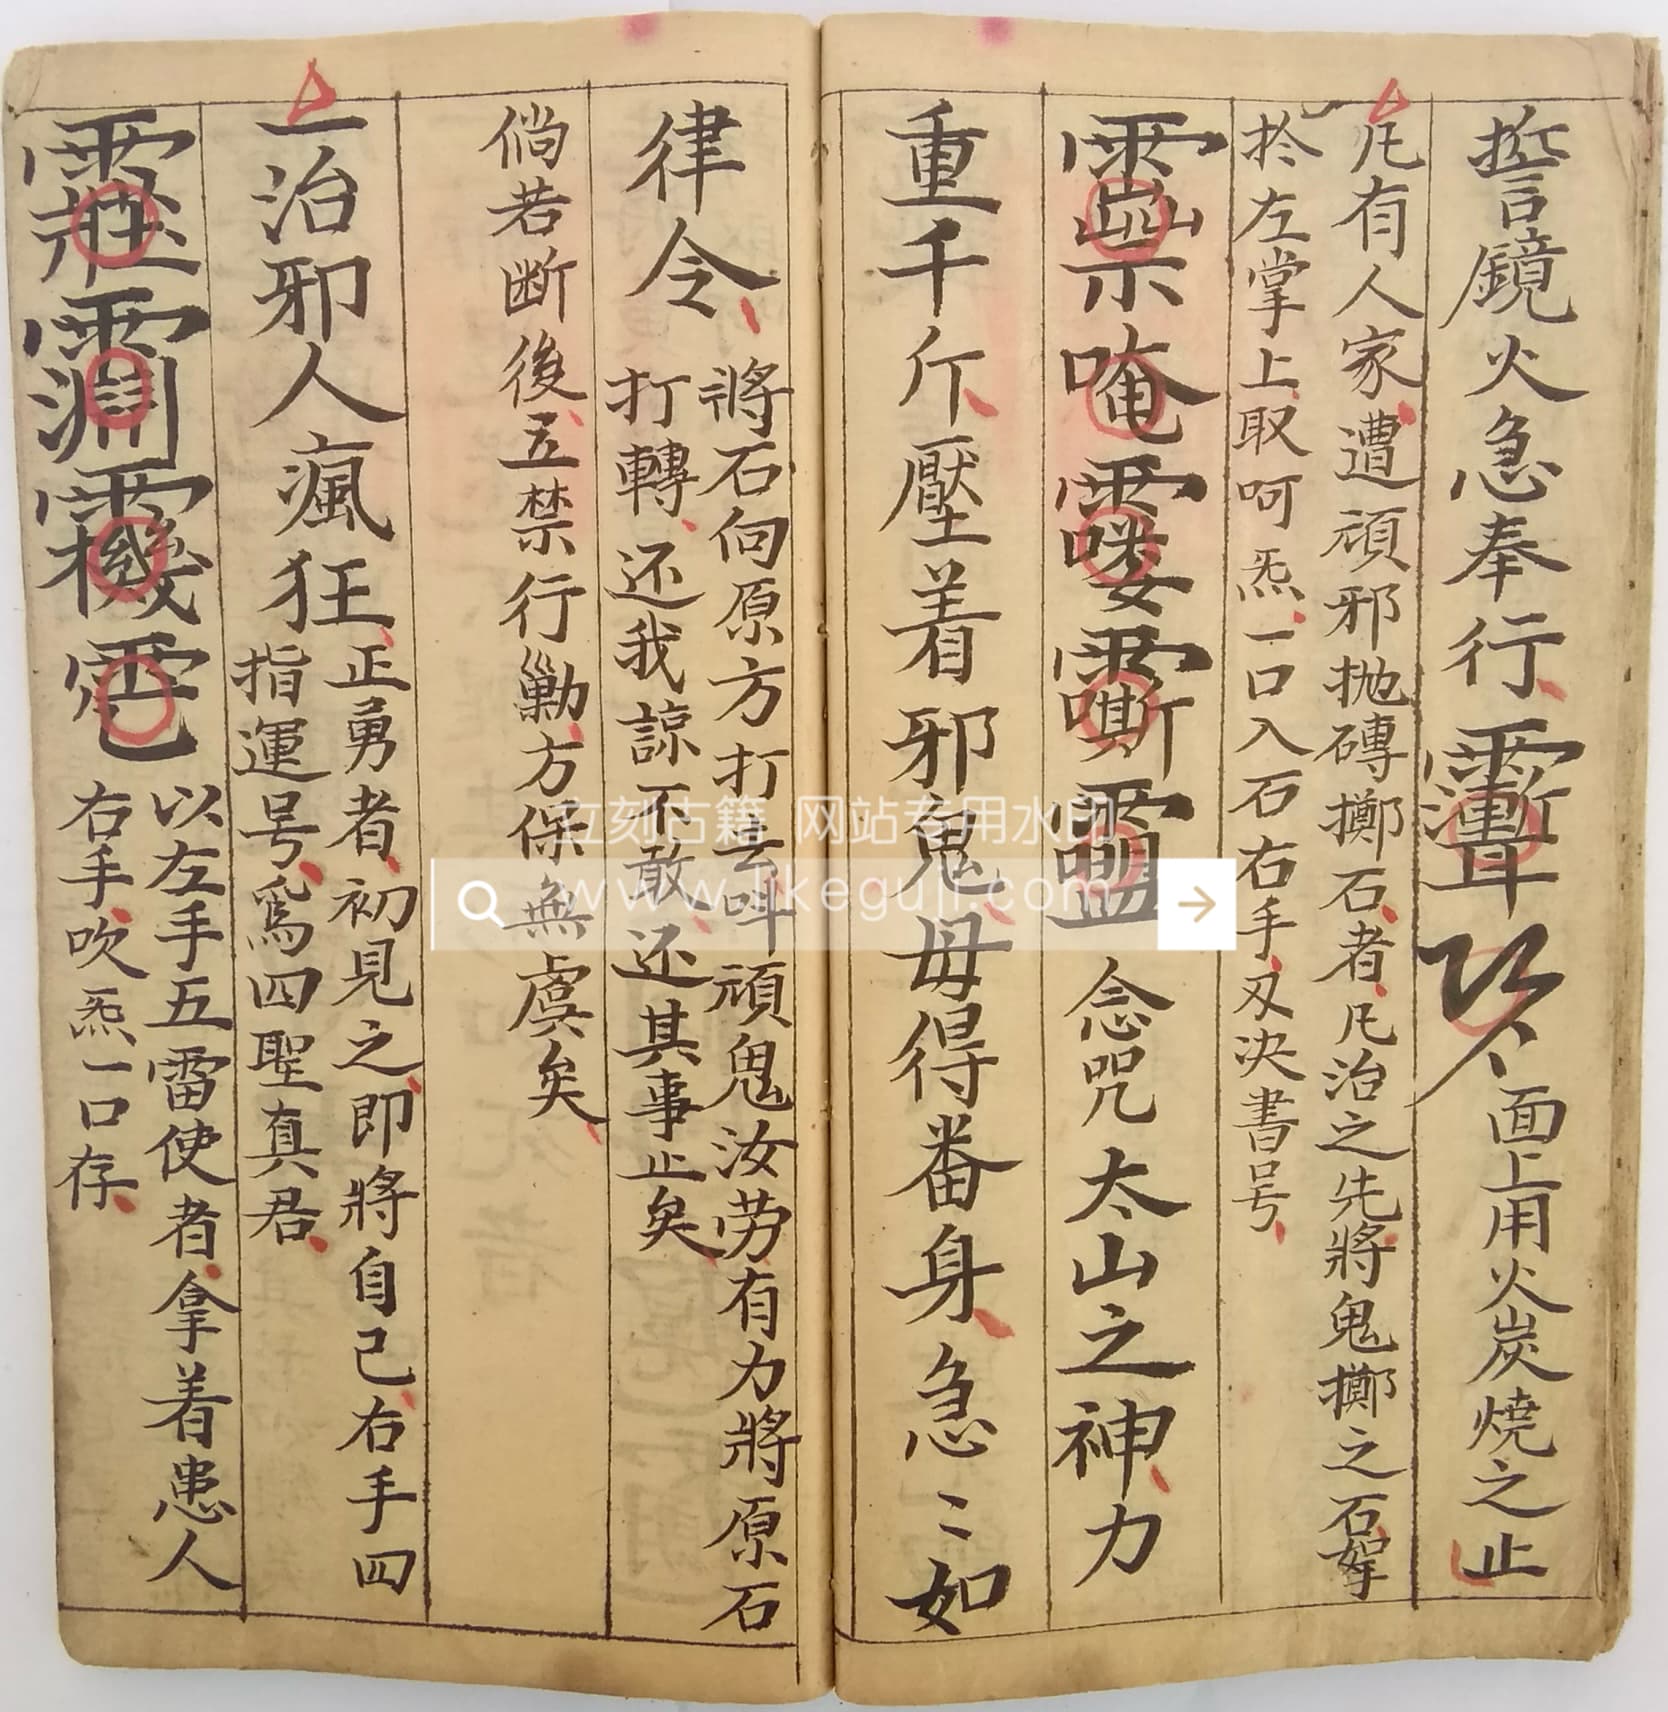 誓鏡火急奉行
面上用火炭燒之止
凡有人家遭頑邪抛磚擲石者凡治之先將鬼擲之石拏
扵左掌上取呵炁一口入石右手叉决書号
唵
念咒太山之神力
重千斤壓着邪鬼毋得番身急〻如
律令
將石向原方打去叫頑鬼汝劳有力將原石
打轉还我諒不敢还其事止矣
倘若断後五禁行勦方保無虞矣
一治邪人瘋狂
正勇者初見之即將自己右手四
指運号為四聖真君
以左手五雷使者拿着患人
右手吹炁一口存
立刻古籍 网站专用水印
www.likeguji.com